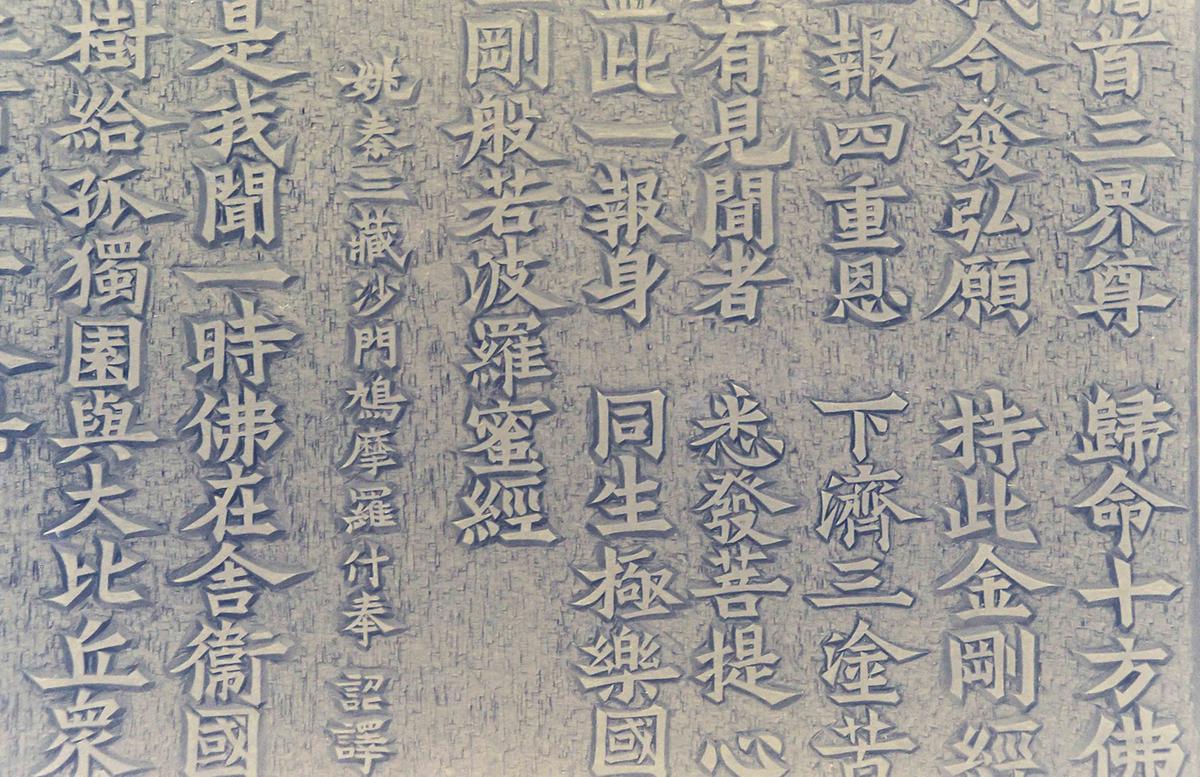 稽首三界尊 歸命十方佛
我今發弘願 持此金剛經
報四重恩 下濟三塗苦
有見聞者 悉發菩提心
盡此一報身 同生極樂國
剛般若波羅蜜經
姚秦三藏沙門鳩摩羅什奉 詔譯
是我聞一時佛在舍衛國
樹給孤獨園與大比丘眾